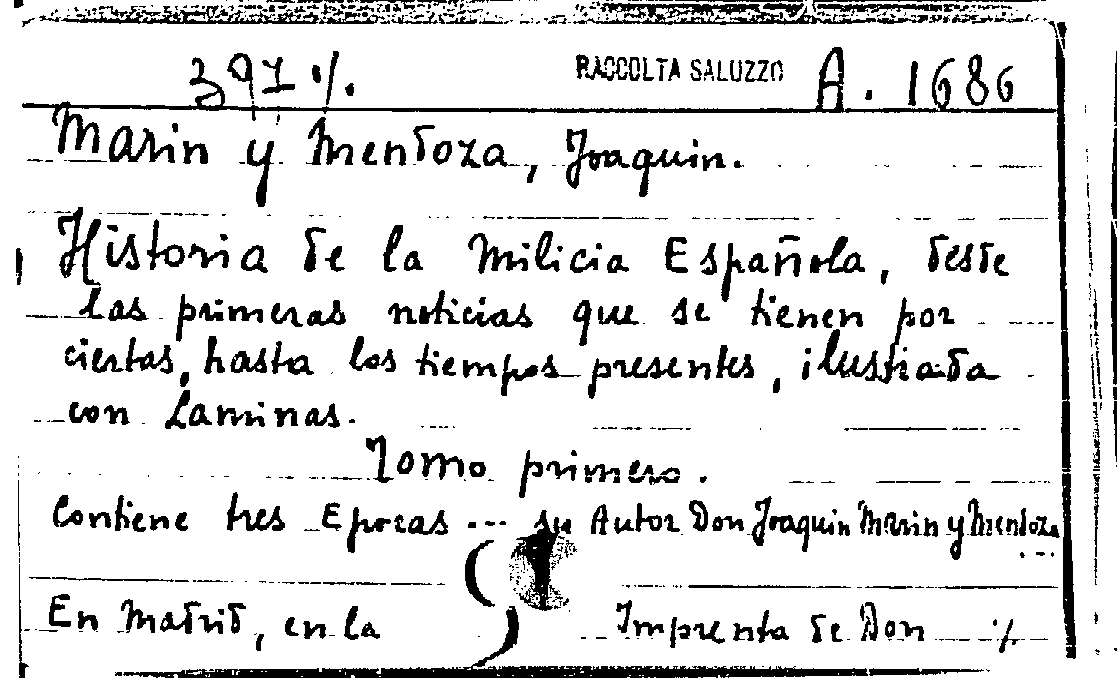 397 ./. RACCOLTA SALUZZO A. 1686
Marin y Mendoza, Joaquin.
Historia de la Milicia Española, desde
las primeras noticias que se tienen por
ciertas, hasta los tiempos presentes, ilustrada
con Laminas.
Tomo primero.
Contiene tres Epocas ... su Autor Don Joaquin Marin y Mendoza
...
En Madrid, en la Imprenta de Don ./.